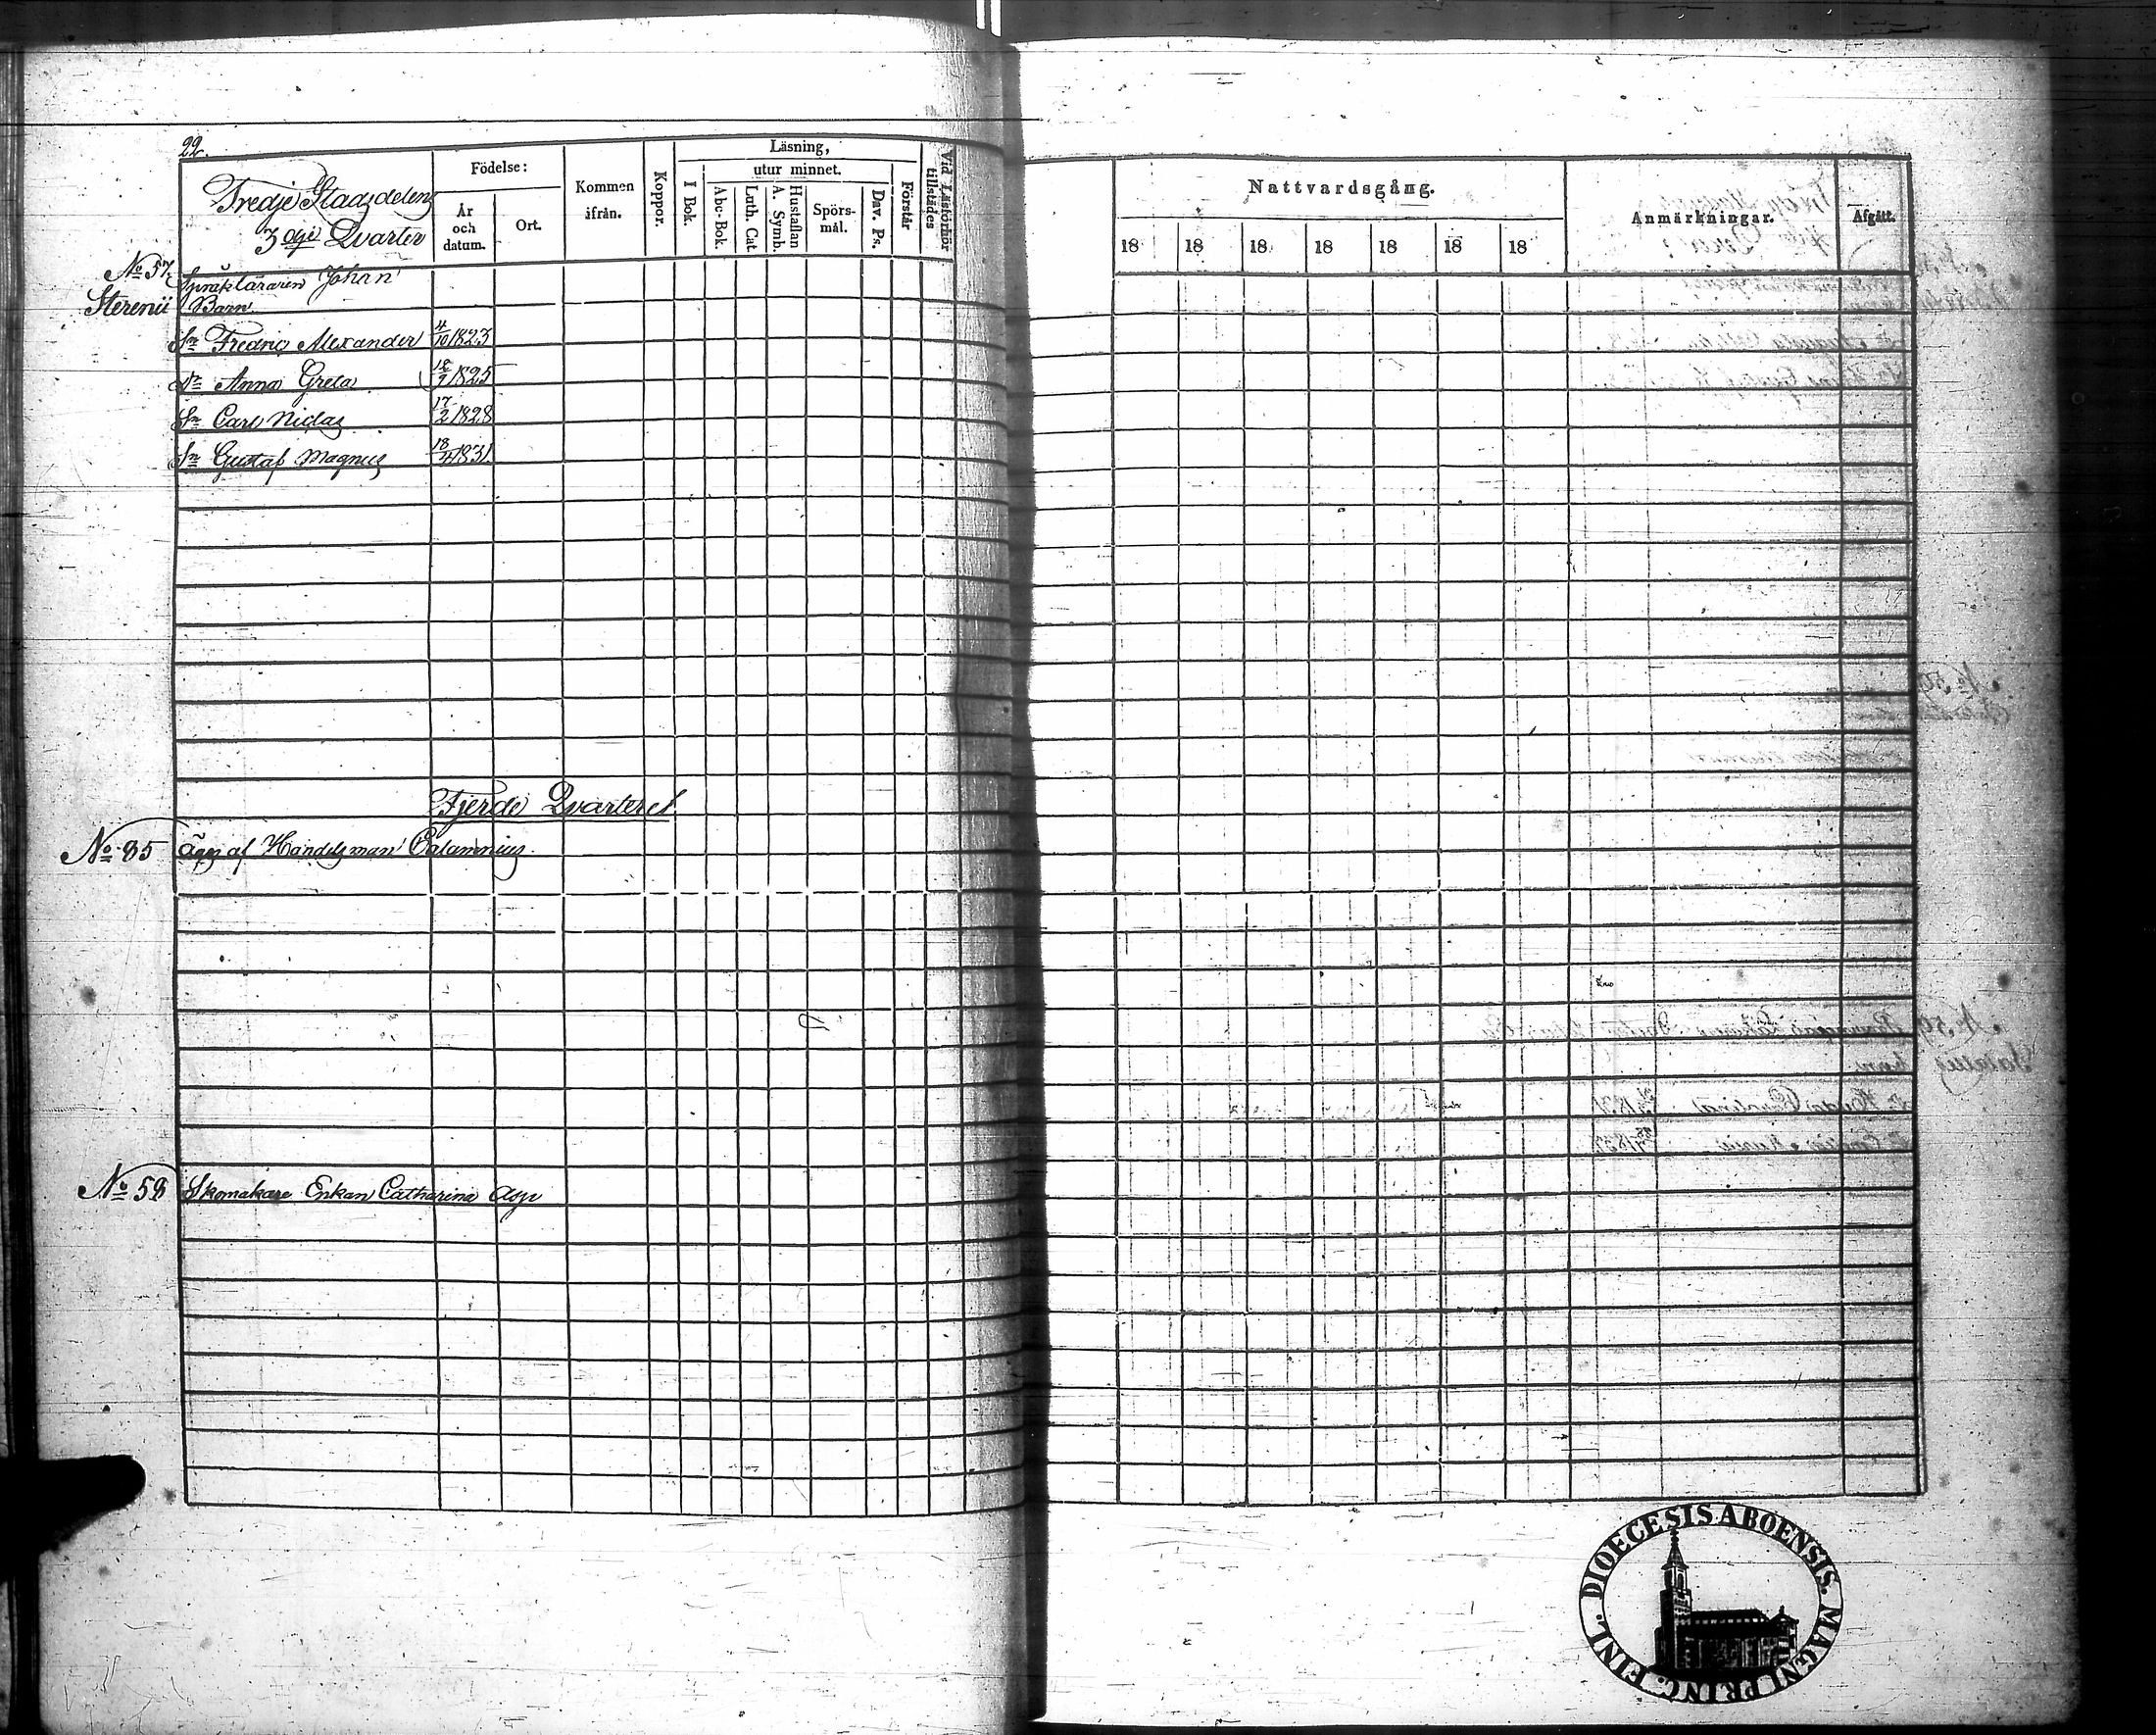 22.
Tredje Stadsdelens
3dje Qvarter
Födelse:
År och datum.
Ort.
Kommen ifrån.
Koppor.
Läsning,
I Bok.
utur minnet.
Abc-Bok.
Luth. Cat.
Hustaflan A. Symb.
Spörs-mål.
Dav. Ps.
Förstår
Vid Läsförhör tillstädes
Nattvardsgång.
18 18 18 18 18 18 18
Anmärkningar.
Afgått.
No 57. Språkläraren Johan
Sterenii Barn
Sn Fredric Alexander 4/10 1823
Dr Anna Greta 12/9 1825
Sn Carl Niclas 17/2 1828
Sn Gustaf Magnus 18/4 1831.
Fjerde Qvarteret
No 85 Äges af Handelsman Calamnius.
No 58 Skomakare Enkan Catharina
DIOECESIS ABOENSIS. MAGNI PRINC. FINL.